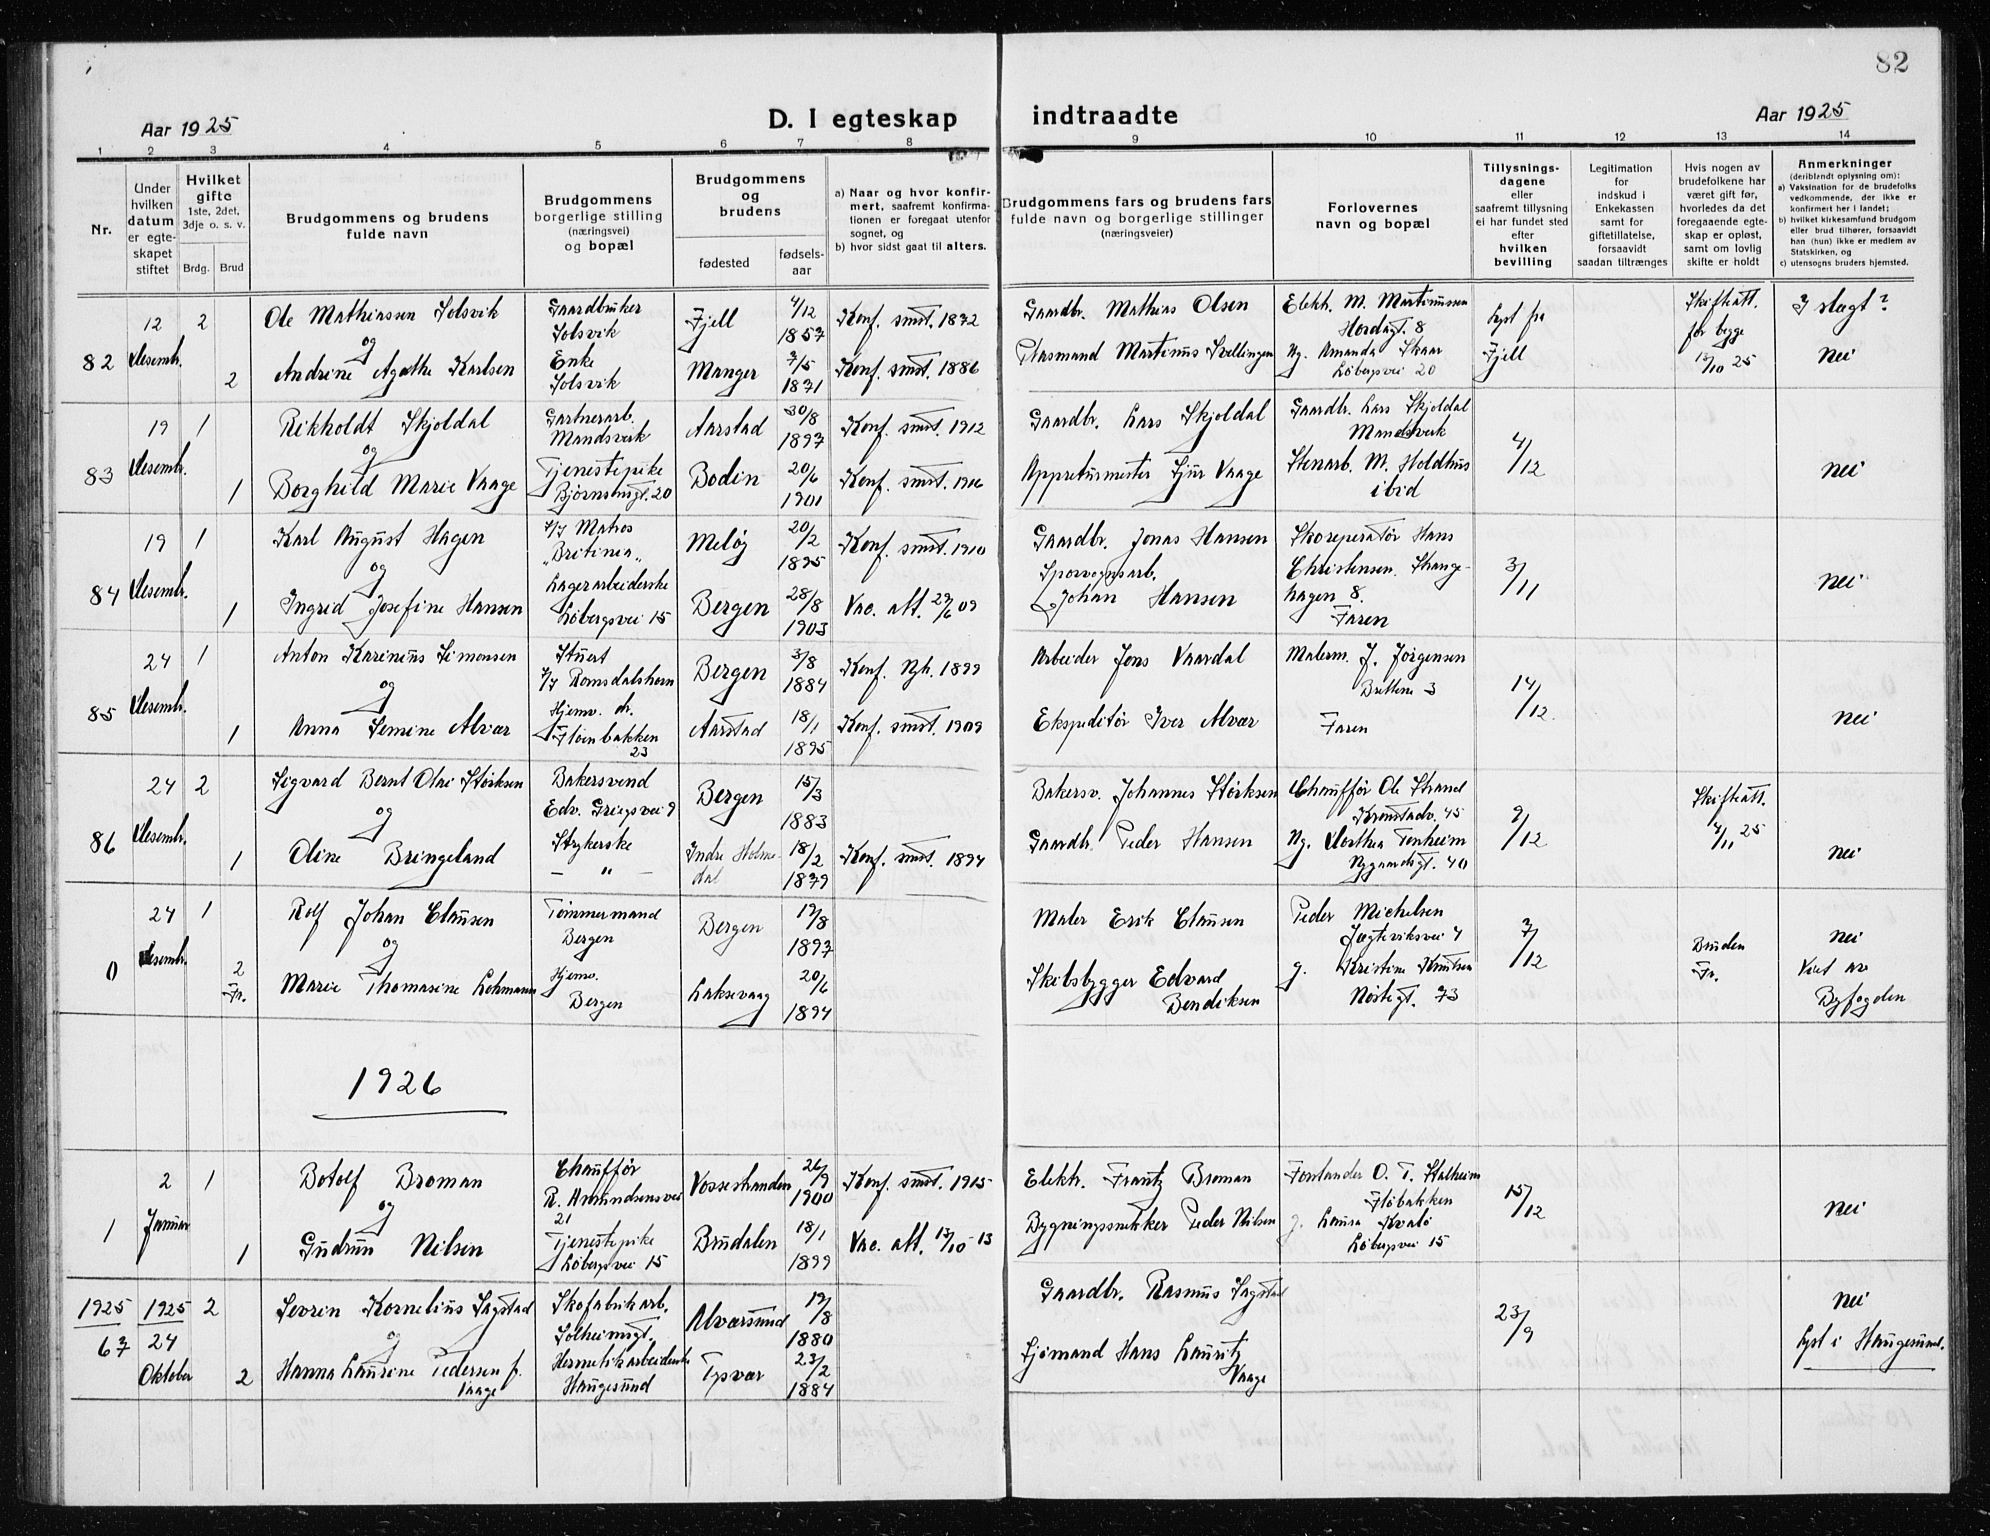 82
Aar 1925
D. I egteskap indtraadte
Aar 1925
1 2 3 4 5 6 7 8 9 10 11 12 13 14
Nr.
Under hvilken datum er egte-skapet stiftet
Hvilket gifte
1ste, 2det, 3dje o. s. v.
Brdg. Brud
Brudgommens og brudens fulde navn
Brudgommens borgerlige stilling (næringsvei) og bopæl
Brudgommens og brudens
fødested
fødsels-aar
a) Naar og hvor konfir-mert, saafremt konfirma-tionen er foregaat utenfor sognet, og
b) hvor sidst gaat til alters.
Brudgommens fars og brudens fars fulde navn og borgerlige stillinger (næringsveier)
Forlovernes navn og bopæl
Tillysnings-dagene eller saafremt tillysning ei har fundet sted efter hvilken bevilling
Legitimation for indskud i Enkekassen samt for giftetillatelse, forsaavidt saadan tiltrænges
Hvis nogen av brudefolkene har været gift før, hvorledes da det foregaaende egte-skap er opløst, samt om lovlig skifte er holdt
Anmerkninger (deriblandt oplysning om):
a) Vaksination for de brudefolks vedkommende, der ikke er konfirmert her i landet;
b) hvilket kirkesamfund brudgom eller brud tilhører, forsaavidt han (hun) ikke er medlem av Statskirken, og
c) utensogns bruders hjemsted.
82
12 Desembr.
2
Ole Mathiassen Solsvik
Gaardbruker Solsvik
Fjell
4/12 1857
Konf. smst. 1872
Gaardbr. Mathias Olsen
Elektr. M. Martinussen Hordagt. 8
Lyst fra Fjell
Skifteatt. for begge 15/10 25
I slegt?
og
2
Andrine Agathe Karlsen
Enke Solsvik
Manger
7/5 1871
Konf. smst. 1886
Plasmand Martinus Svellingen
Ng. Amanda Skaar Løbergsvei 20
Nei
83
19 Desembr.
1
Rikholdt Skjoldal
Gartnerarb. Mandsverk
Aarstad
30/8 1897
Konf. smst. 1912
Gaardbr. Lars Skjoldal
Gaardbr. Lars Skjoldal Mandsverk
4/12
og
1
Borghild Marie Vaage
Tjenestepike Bjørnsonsgt. 20
Bodin
20/6 1901
Konf. smst. 1916
Appreturmester Sjur Vaage
Stenarb. M. Holdhus ibid
nei
84
19 Desembr.
1
Karl August Hagen
Matros "Britinia"
Meløy
20/2 1895
Konf. smst. 1910
Gaardbr. Jonas Hansen
Skoreparatør Hans Christensen Strange-hagen 8.
3/11
og
1
Ingrid Josefine Hansen
Lagerarbeiderske Løbergsvei 15
Bergen
28/8 1903
Vac. att. 29/6 09
Sporvognsarb. Johan Hansen
Faren
nei
85
24 Desembr.
1
Anton Karinius Simonsen
Stuert Romsdalshorn
Bergen
3/8 1884
Konf. Nyk. 1899
Arbeider Jons Vaardal
Malerm. J. Jørgensen 3
14/12.
og
1
Anna Semine Alvær
Hjemv. dr. Fløenbakken 23
Aarstad
18/1 1895
Konf. smst. 1909
Ekspeditør Iver Alvær
Faren
nei
86
24 Desembr.
2
Sigvard Bernt Olai Størksen
Bakersvend Edv. Griegsvei 9
Bergen
15/3 1883
Bakersv. Johannes Størksen
Chauffør Ole Strand Kronstadv. 45
9/12
Skifteatt. 4/11 25
og
1
Oline Bringeland
Strykerske - " -
Indre Holme-dal
18/2 1879
Konf. smst. 1894
Gaardbr. Peder Hansen
Ng. Dorthea Tenheim Nygaardsgt. 40
nei
0
24 Desembr.
1
Rolf Johan Clausen
Tømmermand Bergen
Bergen
19/8 1897
Maler Erik Clausen
Peder Michelsen Jægteviksvei 4
7/12
Bruden Fr.
nei
og
2 Fr.
Marie Thomasine Lohmann
Hjemv. Bergen
Laksevaag
20/6 1894
Skibsbygger Edvard Bendiksen
g. Kristine Knutsen Nøstegt. 73
Viet av Byfogden
1926
1
2 Januar
1
Botolf Broman
Chauffør R. Amundsensvei 21
Vossestranden
26/9 1900
Konf. smst. 1915
Elektr. Frantz Broman
Forstander O. T. Stalheim Fløbakken
15/12
og
1
Gudrun Nilsen
Tjenestepike Løbergsvei 15
Brudalen
18/1 1899
Vac. att. 13/10 - 13
Bygningssnekker Peder Nilsen
g. Laura Kvalø Løbergsvei 15
nei
1925 67
1925 24 Oktober
2
Sevrin Kornelius Sagstad
Skofabrikarb. Solheimsgt.
Alversund
19/8 1880
Gaardbr. Rasmus Sagstad
23/9
nei
og
2
Hanna Laurine Pedersen f. Vaage
Hermetikarbeiderske Haugesund
Tysvær
23/2 1884
Sjømand Hans Lauritz Vaage
Lyst i Haugesund.